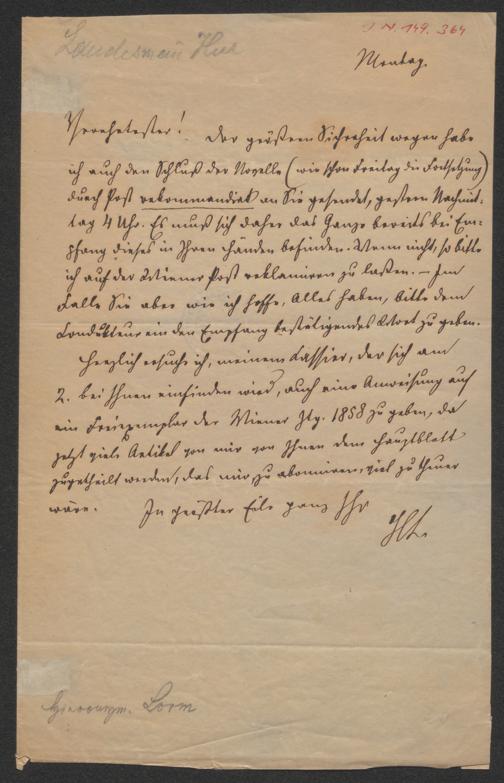 I. N. 149.364
Landesmann Hier
Montag.
Verehrtester! Der größern Sicherheit wegen habe
ich auch den Schluß der Novelle (wie schon Freitag die Fortsetzung)
durch Post rekommandirt an Sie gesendet, gestern Nachmit-
tag 4 Uhr. Es muß sich daher das Ganze bereits bei Em-
pfang dieses in Ihren Händen befinden. Wenn nicht, so bitte
ich auf der Wiener Post reklamiren zu laßen. – Im
Falle Sie aber wie ich hoffe, Alles haben, bitte dem
Condukteur ein den Empfang bestätigendes Wort zu geben.
Herzlich ersuche ich, meinem Cassier, der sich am
2. bei Ihnen einfinden wird, auch eine Anweisung auf
ein Freiexemplar der Wiener Ztg. 1858 zu geben, da
jetzt viele Artikel von mir von Ihnen dem Hauptblatt
zugetheilt werden, das mir zu abonniren, viel zu theuer
wäre. In größter Eile ganz Ihr
HL.
Hieronym. Lorm